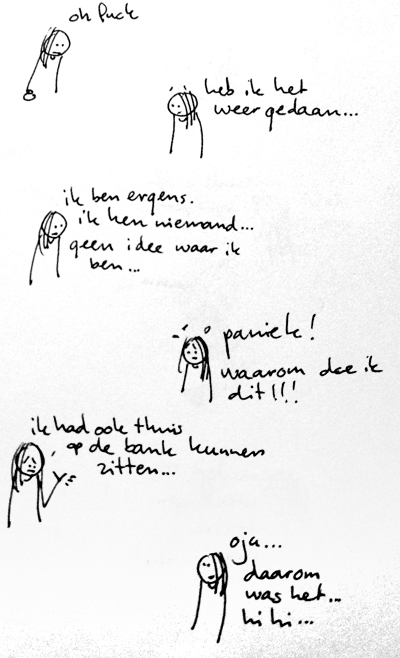 oh fuck
heb ik het
weer gedaan...
ik ben ergens.
ik ken niemand...
geen idee waar ik
ben...
paniek!
waarom doe ik
dit!!!
ik had ook thuis
op de bank kunnen
zitten...
oja...
daarom
was het...
hi hi...